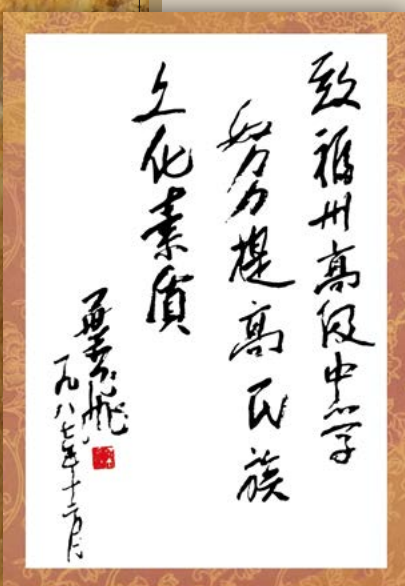 致福州高级中学
努力提高民族
文化素质
一九八七年十二月